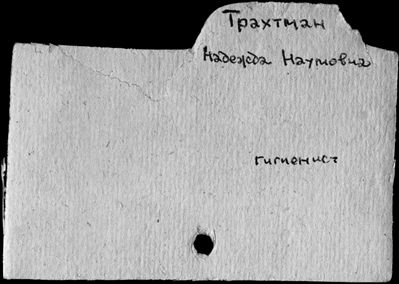 Трахтман
Надежда Наумовна
гигиенист